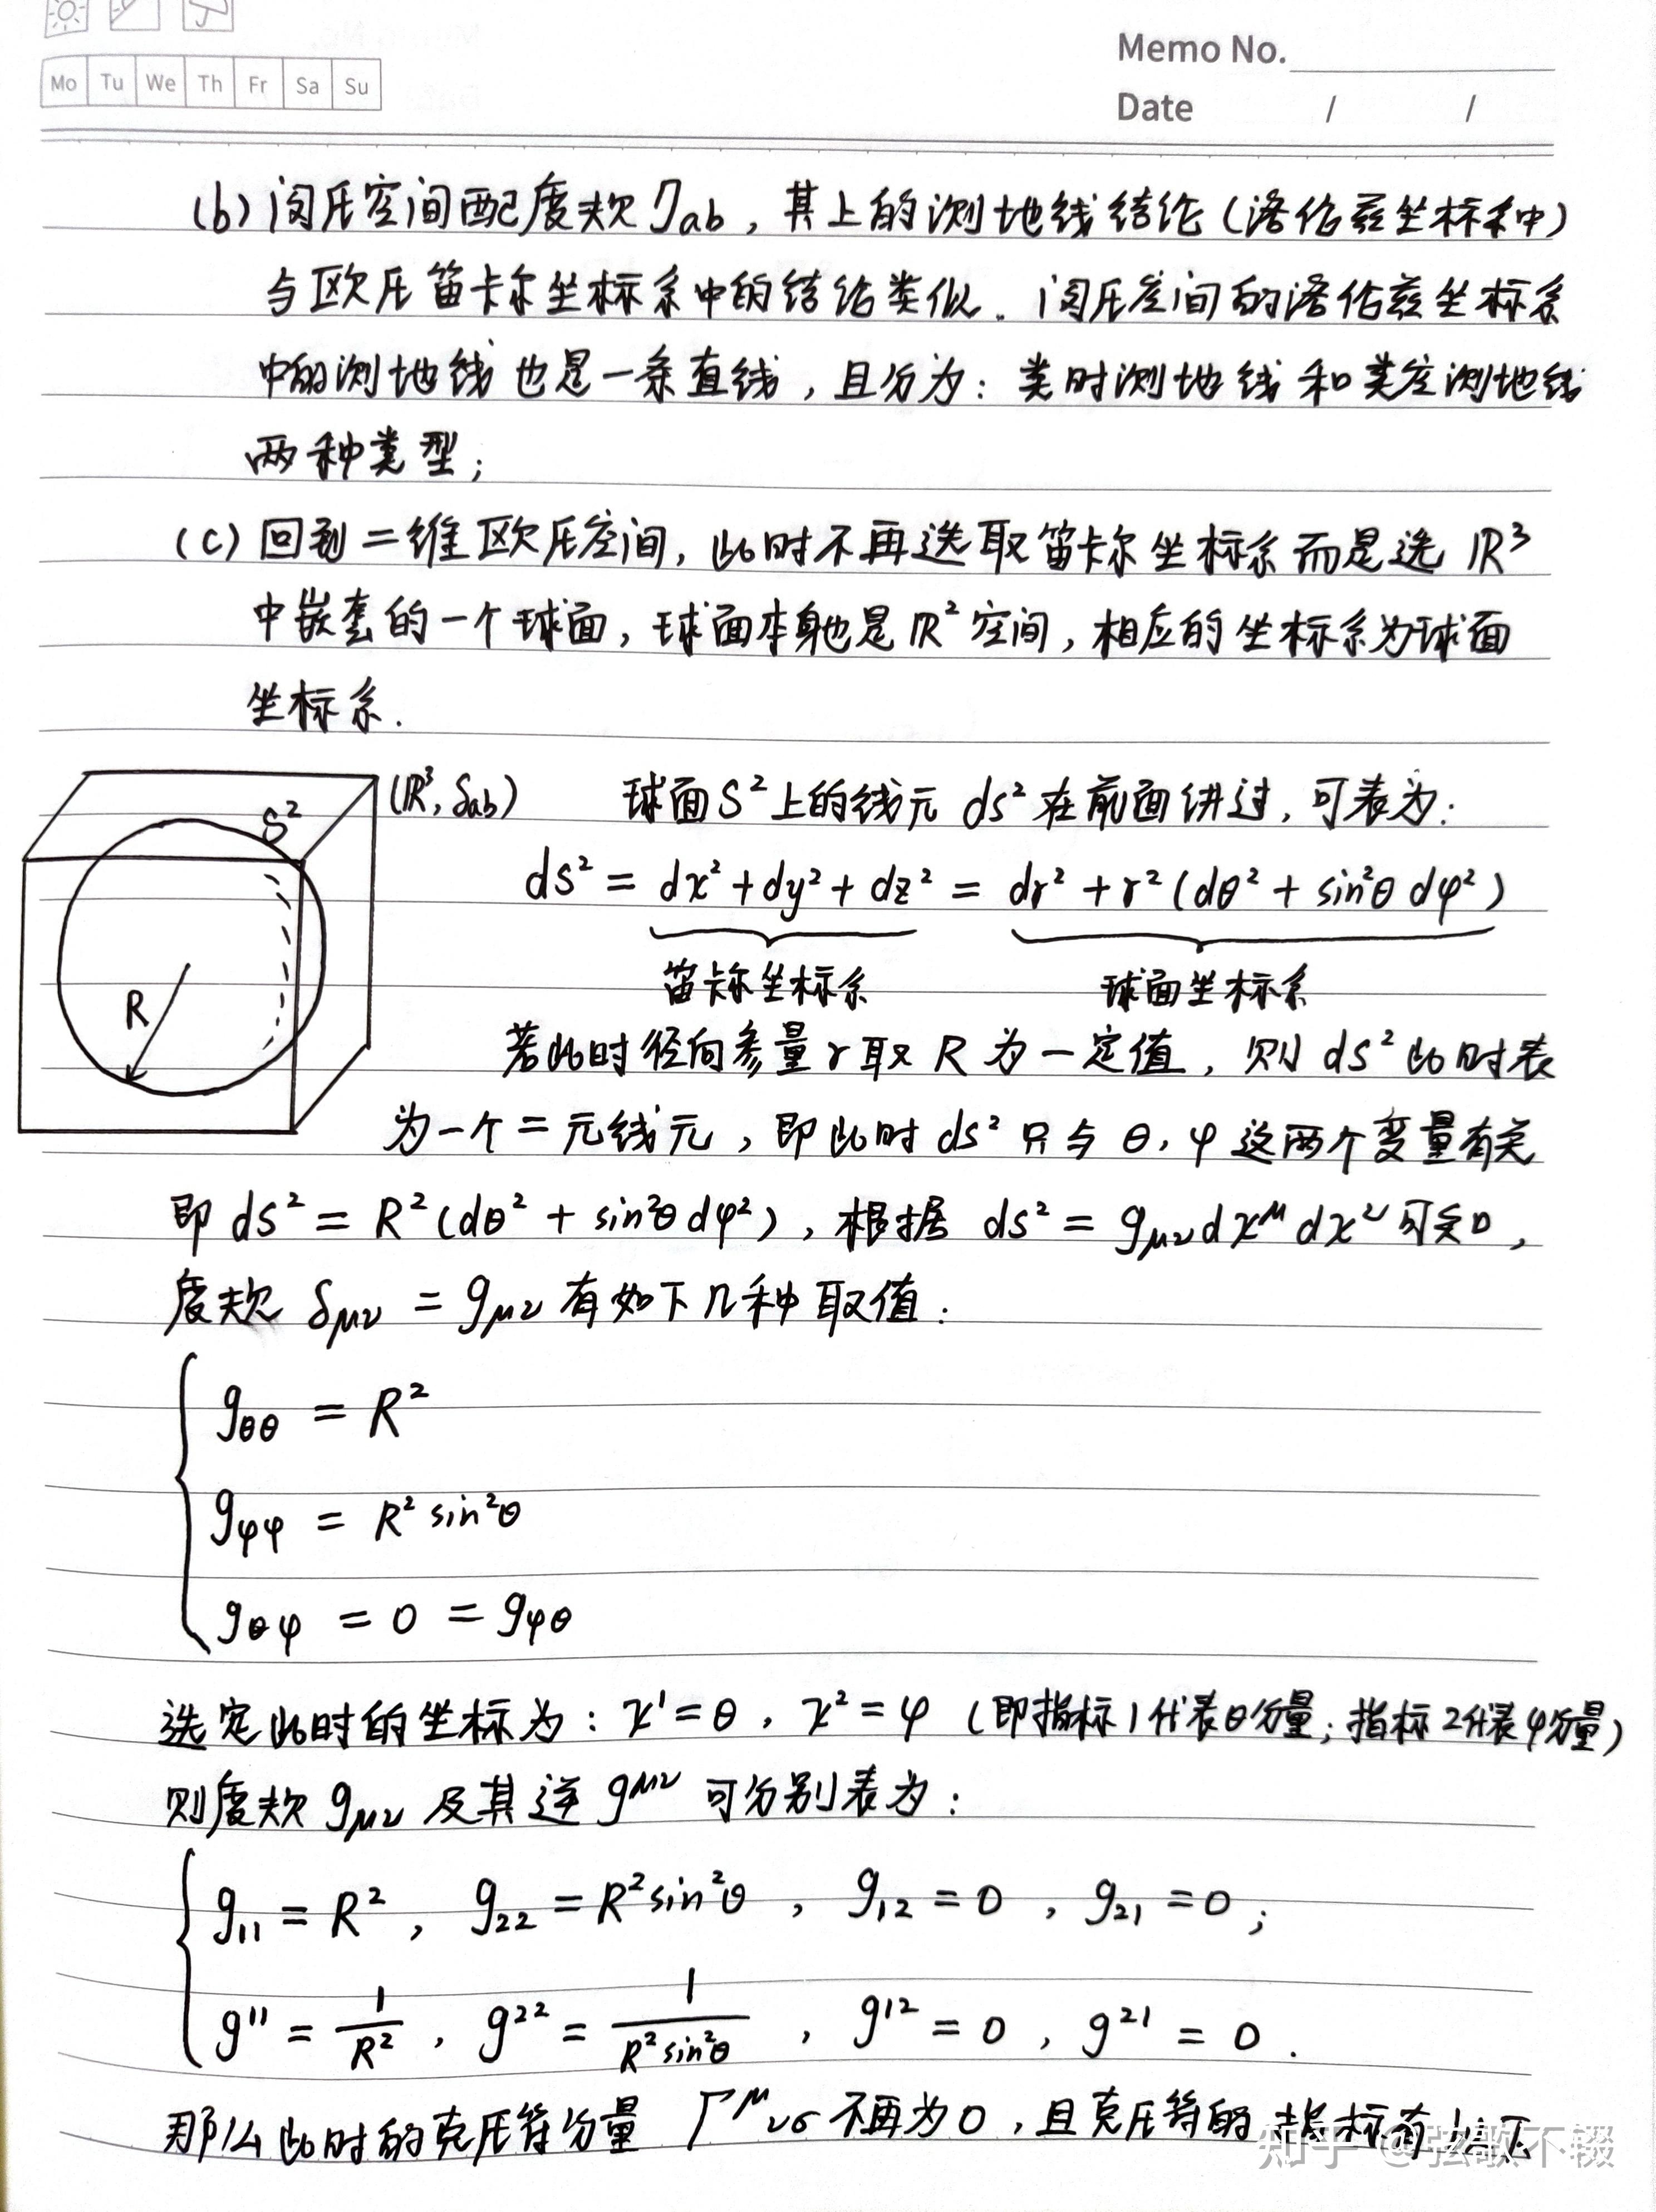 Mo Tu We Th Fr Sa Su
Memo No.
Date / /
(b) 闵氏空间配度规 ηab，其上的测地线结论（洛伦兹坐标系中）
与欧氏笛卡尔坐标系中的结论类似．闵氏空间的洛伦兹坐标系
中的测地线也是一条直线，且分为：类时测地线和类空测地线
两种类型；
(c) 回到二维欧氏空间，此时不再选取笛卡尔坐标系而是选 ℝ³
中嵌套的一个球面，球面本身也是 ℝ² 空间，相应的坐标系为球面
坐标系．
(ℝ³, δab)
S²
R
球面S²上的线元 ds² 在前面讲过，可表为：
ds² = dx² + dy² + dz² = dr² + r² (dθ² + sin²θ dφ²)
笛卡尔坐标系 球面坐标系
若此时径向参量 r 取 R 为一定值，则 ds² 此时表
为一个二元线元，即此时 ds² 只与 θ，φ 这两个变量有关
即 ds² = R² (dθ² + sin²θ dφ²)，根据 ds² = gμν dx^μ dx^ν 可知，
度规 δμν = gμν 有如下几种取值：
gθθ = R²
gφφ = R² sin²θ
gθφ = 0 = gφθ
选定此时的坐标为：x¹ = θ，x² = φ （即指标1代表θ分量；指标2代表φ分量）
则度规 gμν 及其逆 g^μν 可分别表为：
g₁₁ = R²，g₂₂ = R² sin²θ，g₁₂ = 0，g₂₁ = 0；
g¹¹ = 1/R²，g²² = 1/(R² sin²θ)，g¹² = 0，g²¹ = 0．
那么此时的克氏符分量 Γ^μ νσ 不再为0，且克氏符的指标有如下
知乎 @弦歌不辍